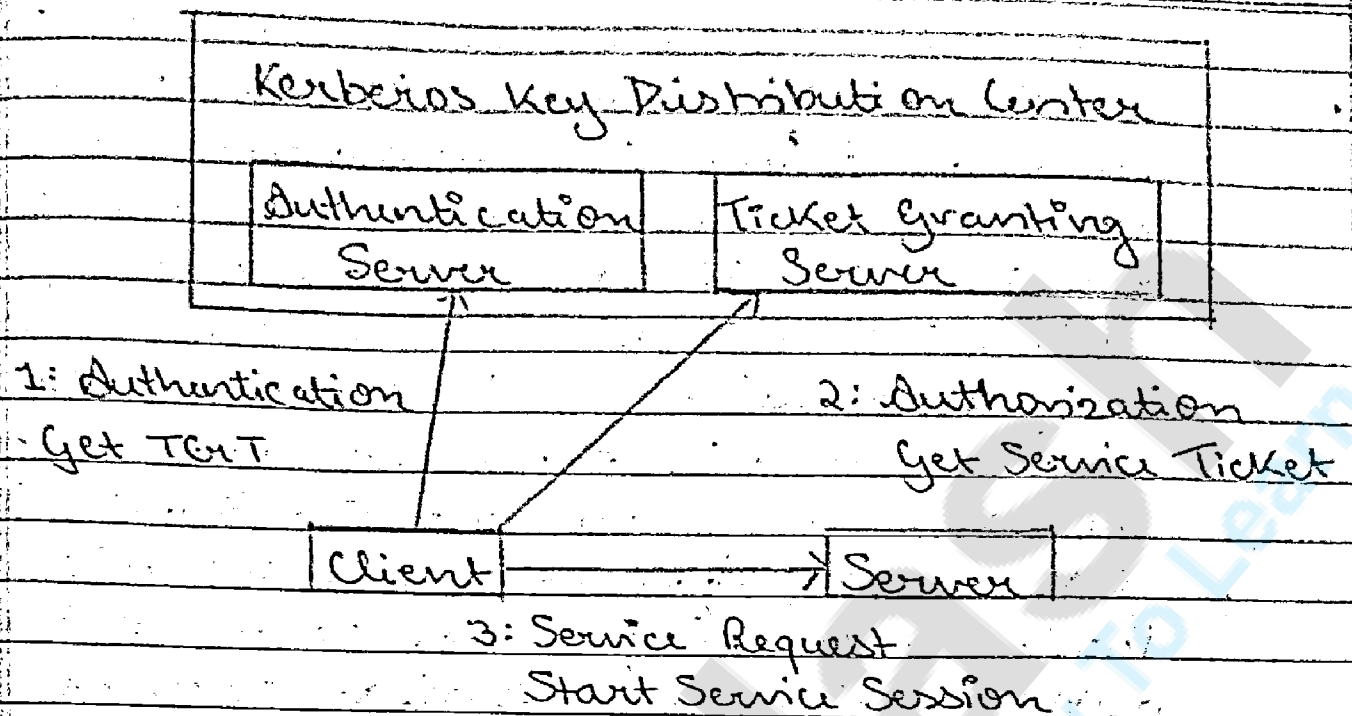 Kerberos Key Distribution Center
Authentication
Server
Ticket Granting
Server
1: Authentication
Get TGT
2: Authorization
Get Service Ticket
Client
Server
3: Service Request
Start Service Session
ash
To Learn